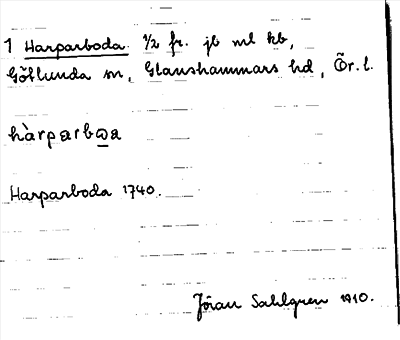 1 Harparboda ½ fr. jb ml kb,
Götlunda sn, Glanshammars hd, Ör. l.
hàrparbωa
Harparboda 1740.
Jöran Sahlgren 1910.